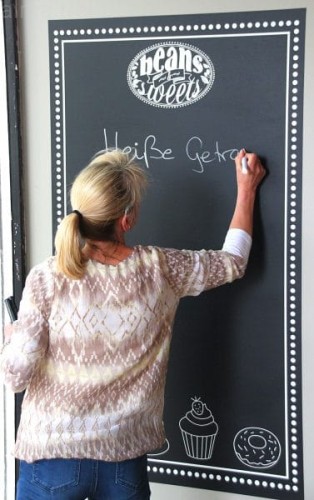 beans
sweets
Heiße Geträ